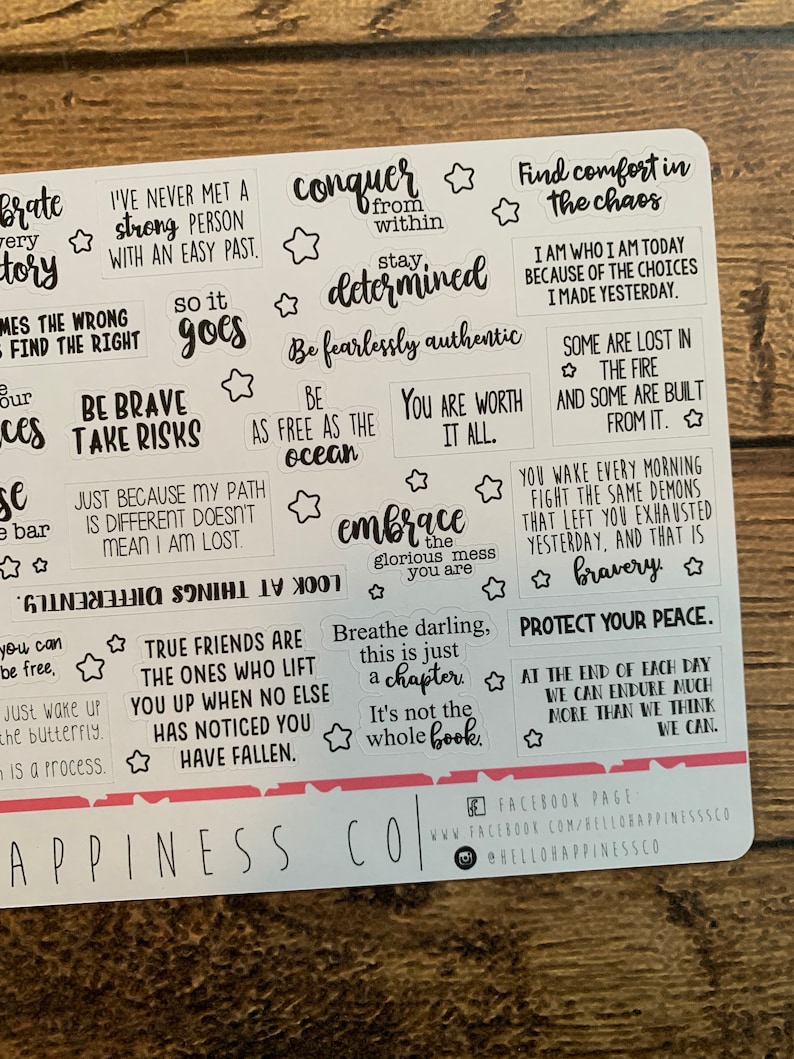 brate
very
tory
I'VE NEVER MET A
strong PERSON
WITH AN EASY PAST.
conquer
from
within
Find comfort in
the chaos
stay
determined
I AM WHO I AM TODAY
BECAUSE OF THE CHOICES
I MADE YESTERDAY.
MES THE WRONG
FIND THE RIGHT
so it
goes
Be fearlessly authentic
SOME ARE LOST IN
THE FIRE
AND SOME ARE BUILT
FROM IT.
e
our
ces
BE BRAVE
TAKE RISKS
BE
AS FREE AS THE
ocean
YOU ARE WORTH
IT ALL.
se
e bar
JUST BECAUSE MY PATH
IS DIFFERENT DOESN'T
MEAN I AM LOST.
embrace
the
glorious mess
you are
YOU WAKE EVERY MORNING
FIGHT THE SAME DEMONS
THAT LEFT YOU EXHAUSTED
YESTERDAY, AND THAT IS
bravery.
LOOK AT THINGS DIFFERENTLY.
you can
be free,
TRUE FRIENDS ARE
THE ONES WHO LIFT
YOU UP WHEN NO ELSE
HAS NOTICED YOU
HAVE FALLEN.
Breathe darling,
this is just
a chapter.
It's not the
whole book.
PROTECT YOUR PEACE.
AT THE END OF EACH DAY
WE CAN ENDURE MUCH
MORE THAN WE THINK
WE CAN.
Just wake up
the butterfly.
is a process.
APPINESS CO
FACEBOOK PAGE
WWW.FACEBOOK.COM/HELLOHAPPINESSSCO
@HELLOHAPPINESSCO